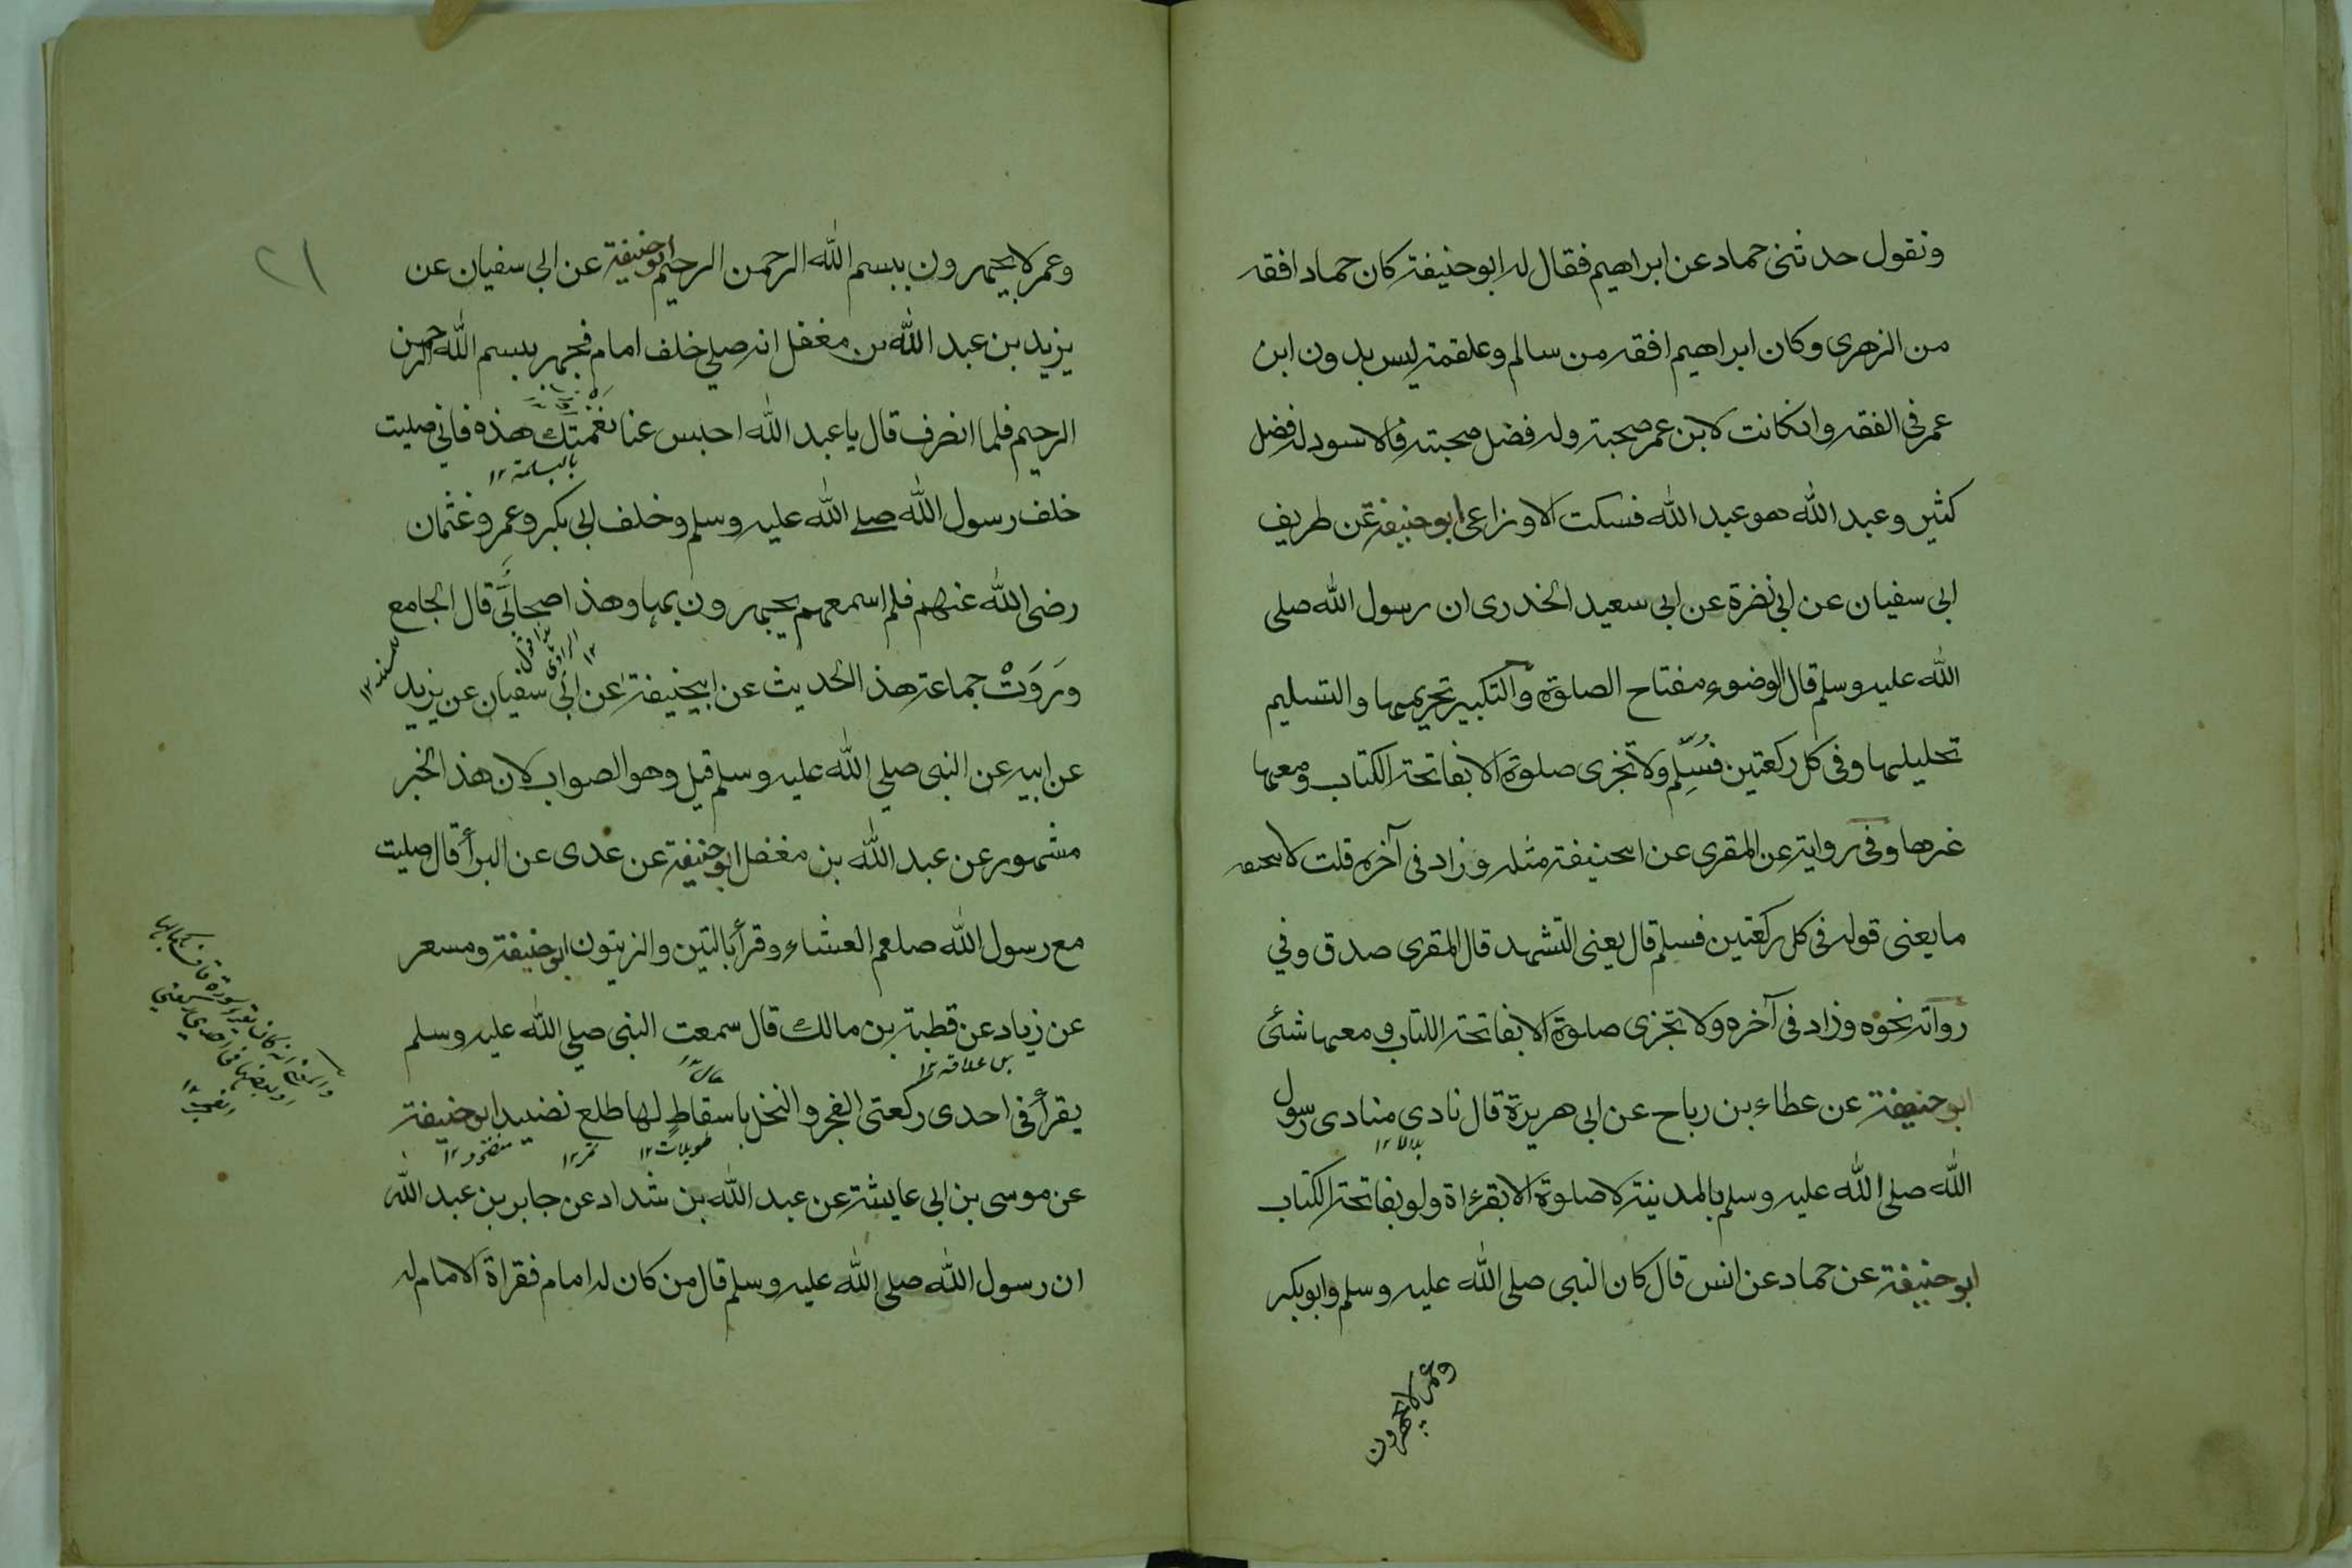 ونقول حدثنى حماد عن ابراهيم فقال له ابوحنيفة كان حماد افقه
من الزهرى وكان ابراهيم افقه من سالم وعلقمة ليس بدون ابن
عمر فى الفقه وانكانت لابن عمر صحبة وله فضل صحبته فالاسود له فضل
كثير وعبد الله هو عبد الله فسكت الاوزاعى ابوحنيفة عن طريف
ابى سفيان عن ابى نضرة عن ابى سعيد الخدرى ان رسول الله صلى
الله عليه وسلم قال الوضوء مفتاح الصلوة والتكبير تحريمها والتسليم
تحليلها وفى كل ركعتين فسلم ولا تجزى صلوة الا بفاتحة الكتاب ومعها
غيرها وفى رواية عن المقرى عن ابيحنيفة مثله وزاد فى آخره قلت لابيحنيفه
ما يعنى قوله فى كل ركعتين فسلم قال يعنى التشهد قال المقرى صدق وفي
رواية نحوه وزاد فى آخره ولا تجزى صلوة الا بفاتحة الكتاب ومعها شئى
ابوحنيفة عن عطاء بن رباح عن ابى هريرة قال نادى منادى رسول
بلال ١٢
الله صلى الله عليه وسلم بالمدينة لا صلوة الا بقرءاة ولو بفاتحة الكتاب
ابوحنيفة عن حماد عن انس قال كان النبى صلى الله عليه وسلم وابوبكر
وعمر لا يجهرون
٢١
وعمر لا يجهرون ببسم الله الرحمن الرحيم ابوحنيفة عن ابى سفيان عن
يزيد بن عبد الله بن مغفل انه صلي خلف امام فجهر ببسم الله الرحمن
الرحيم فلما انصرف قال يا عبد الله احبس عنا نغمتك هذه فانى صليت
بالبسملة ١٢
خلف رسول الله صلے الله عليه وسلم وخلف ابى بكر وعمر وعثمان
رضى الله عنهم فلم اسمعهم يجهرون بها وهذا صحابى قال الجامع
للمسند ١٢
وروت جماعة هذا الحديث عن ابيحنيفة عن ابى سفيان عن يزيد
عن ابيه عن النبى صلي الله عليه وسلم قيل وهو الصواب لان هذا الخبر
مشهور عن عبد الله بن مغفل ابوحنيفة عن عدى عن البرأ قال صليت
مع رسول الله صلعم العشاء وقرأ بالتين والزيتون ابوحنيفة ومسعر
عن زياد عن قطبة بن مالك قال سمعت النبى صلي الله عليه وسلم
بن علاقه ١٢
يقرأ فى احدى ركعتى الفجر والنخل باسقاط لها طلع نضيد ابوحنيفة
طويلات ١٢ ثمر ١٢ منضود ١٢
عن موسى بن ابى عايشة عن عبد الله بن شداد عن جابر بن عبد الله
ان رسول الله صلى الله عليه وسلم قال من كان له امام فقراة الامام له